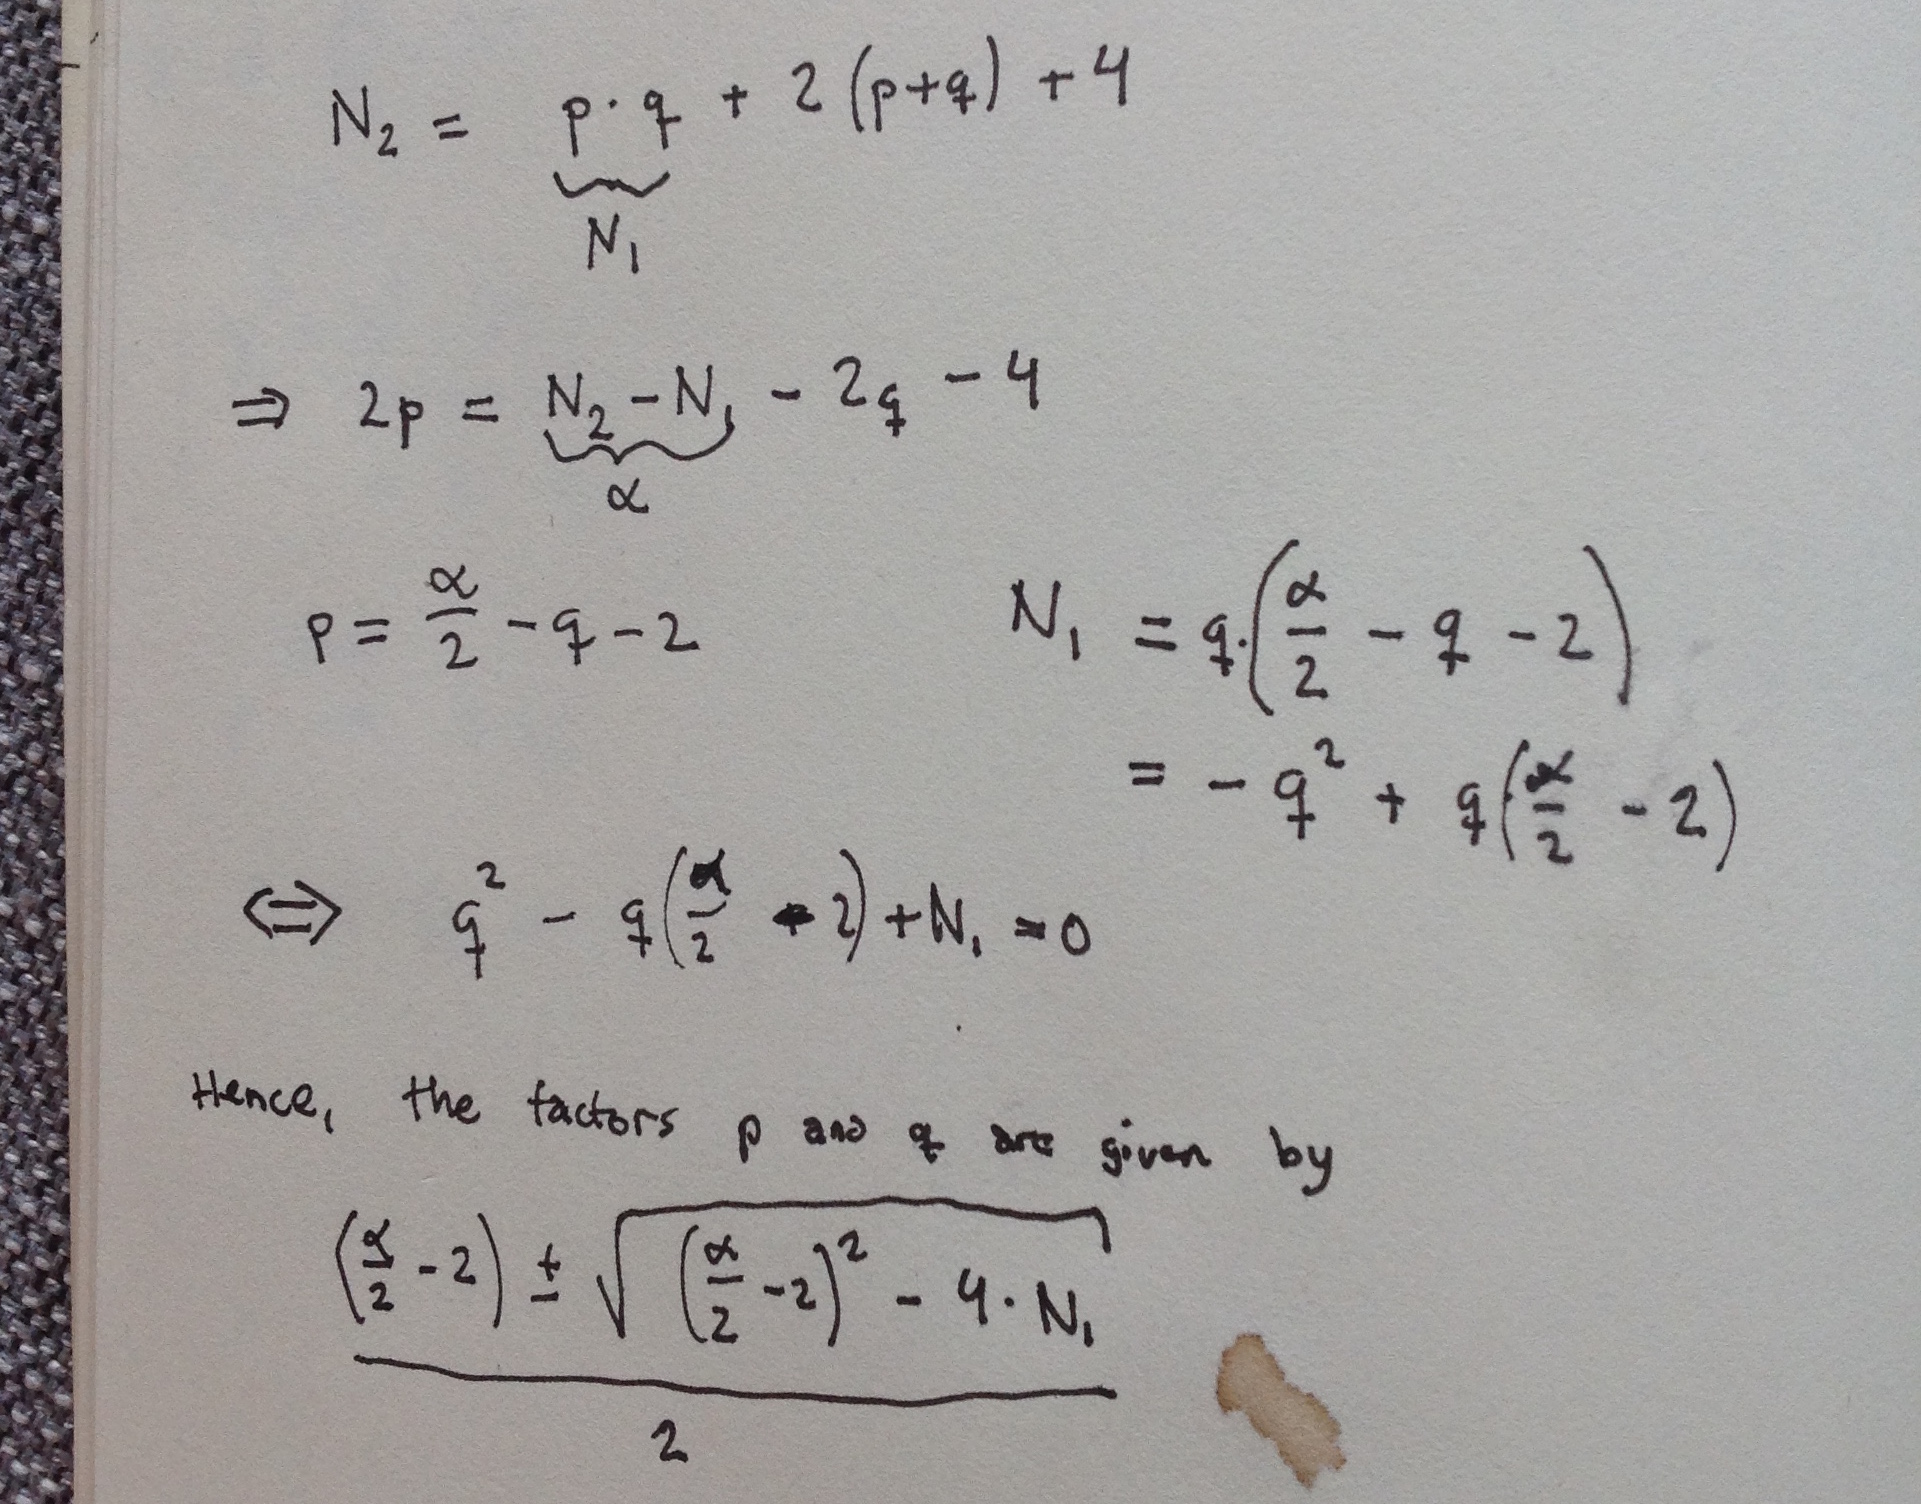 N₂ = p·q + 2(p+q) + 4
N₁
⇒ 2p = N₂ - N₁ - 2q - 4
α
p = α/2 - q - 2
N₁ = q·(α/2 - q - 2)
= - q² + q(α/2 - 2)
⇔ q² - q(α/2 - 2) + N₁ = 0
Hence, the factors p and q are given by
((α/2 - 2) ± √((α/2 - 2)² - 4·N₁))/2